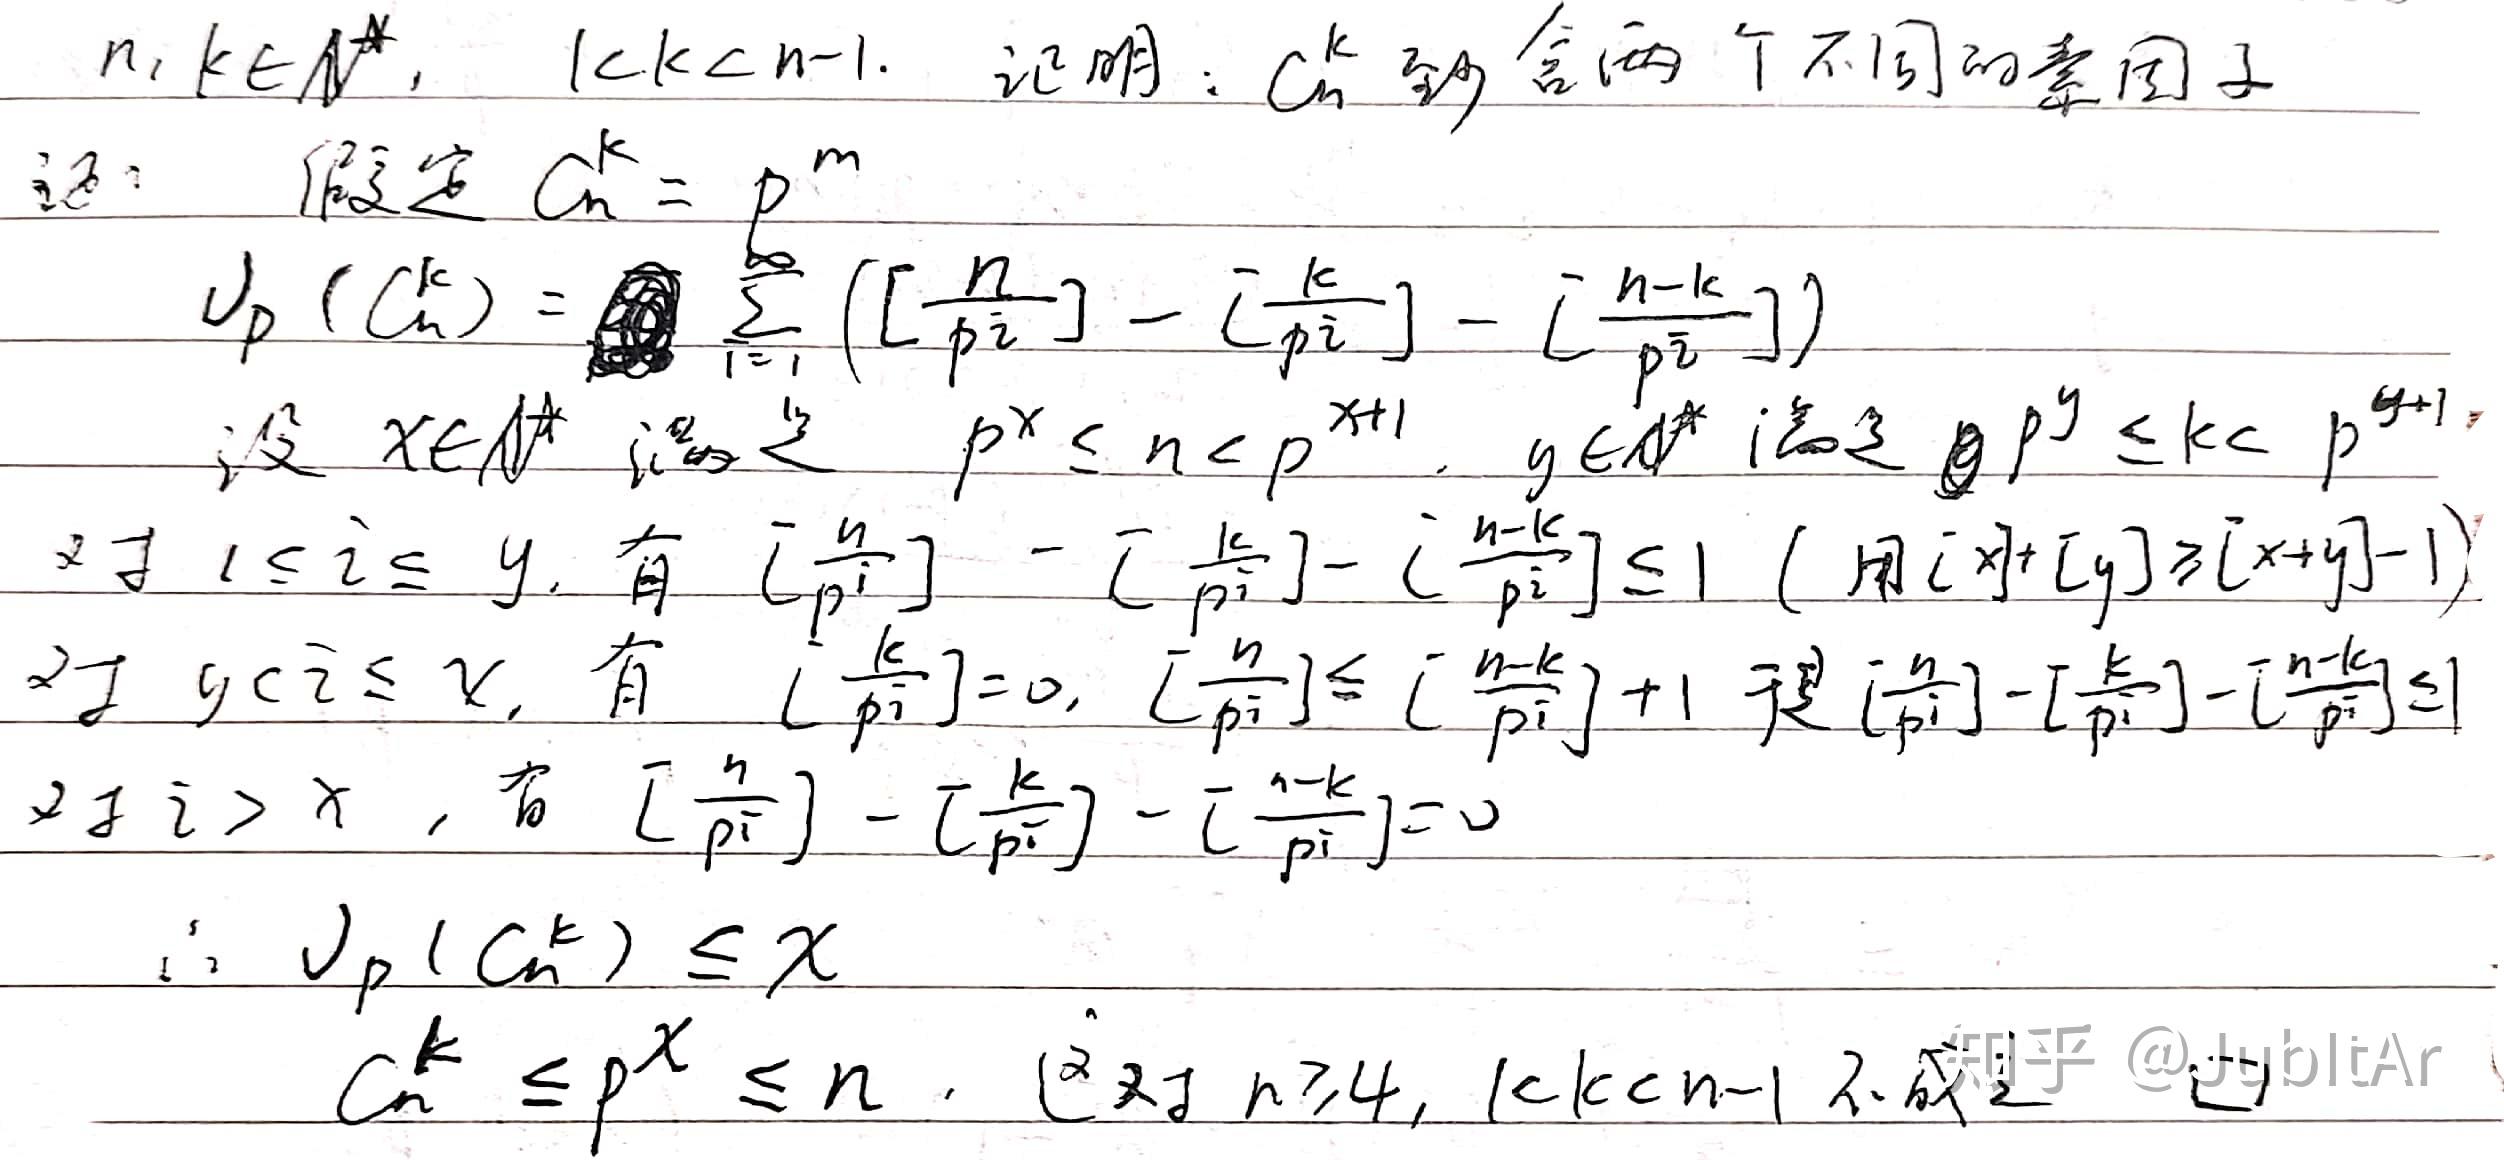 n, k∈N*, 1<k<n-1. 证明: C_n^k 至少含两个不同的素因子
证: 假定 C_n^k = p^m
ν_p(C_n^k) = ∑_{i=1}^{∞} ([n/p^i] - [k/p^i] - [(n-k)/p^i])
设 x∈N* 满足 p^x ≤ n < p^{x+1}. y∈N* 满足 p^y ≤ k < p^{y+1}.
对于 1≤i≤y, 有 [n/p^i] - [k/p^i] - [(n-k)/p^i] ≤ 1 (用[x]+[y]≥[x+y]-1)
对于 y<i≤x, 有 [k/p^i]=0, [n/p^i] ≤ [(n-k)/p^i]+1 于是 [n/p^i]-[k/p^i]-[(n-k)/p^i]≤1
对于 i>x, 有 [n/p^i] - [k/p^i] - [(n-k)/p^i]=0
∴ ν_p(C_n^k) ≤ x
C_n^k ≤ p^x ≤ n. 但对于 n≥4, 1<k<n-1 不成立 □
知乎 @JubItAr